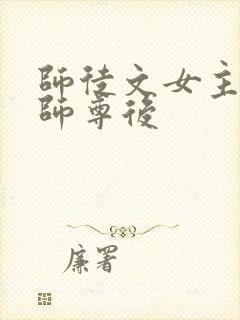 師徒文女主
師尊後
廉署